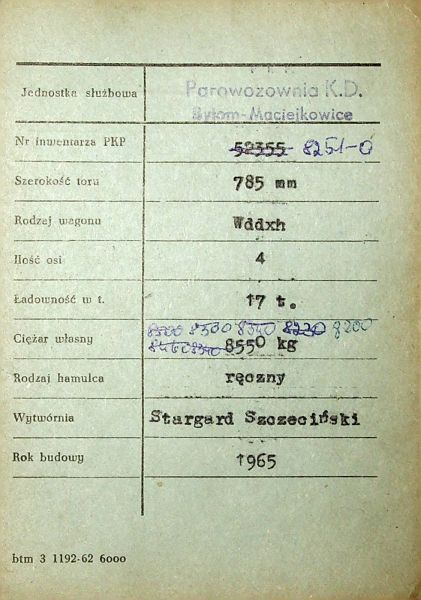 P K P
Jednostka służbowa Parowozownia K.D.
Bytom-Maciejkowice
Nr inwentarza PKP 52355 8251-0
Szerokość toru 785 mm
Rodzaj wagonu Wddxh
Ilość osi 4
Ładowność w t. 17 t.
8500 8300 8340 8220 8200
Ciężar własny 8460 8340 8550 kg
Rodzaj hamulca ręczny
Wytwórnia Stargard Szczeciński
Rok budowy 1965
btm 3 1192-62 6000